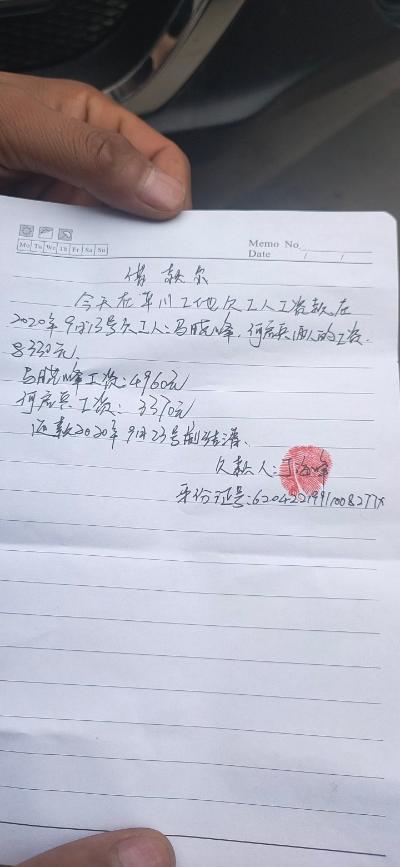 Memo No.
Mo Tu We Th Fr Sa Su
Date / /
借款条
今天在草川工地欠工人工资款在
2020年9月13号欠工人:马晓峰.何应兵两人的工资.
8330元.
马晓峰工资:4960元
何应兵工资:3370元
还款2020年9月23号前结清.
欠款人:丁海峰
身份证号:62042219911008277X